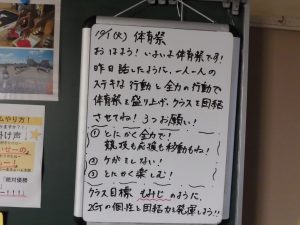 体育祭
おはよう！いよいよ体育祭です！
昨日話したように、一人一人の
ステキな行動と全力の行動で
体育祭を盛り上げ、クラスを団結
させてね！3つお願い！
① とにかく全力で！
競技も応援も移動もね！
② ケガをしない！
③ とにかく楽しむ！
クラス目標 もみじのように、
の個性と団結力を発揮しよう！！
ムやり方！
け声！